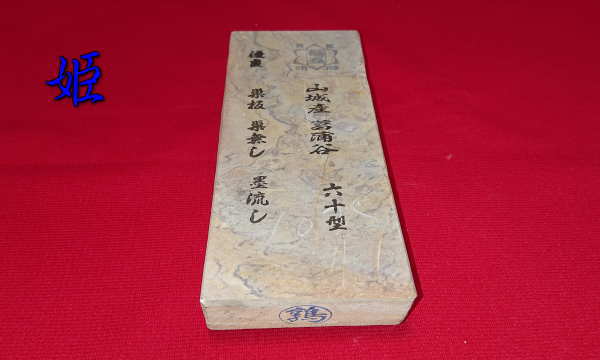 姫
山城産 菖蒲谷 六十型
優良 巣板 巣無し 墨流し
鶉